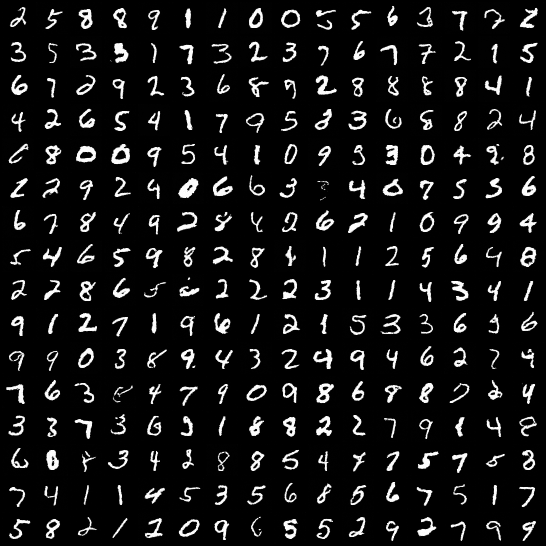 2 5 8 8 9 1 1 0 0 5 5 6 3 7 7 2
3 5 3 3 1 7 3 2 3 7 6 7 7 2 1 5
6 7 2 9 2 3 6 8 9 2 8 8 8 8 4 1
4 2 6 5 4 1 7 9 5 3 3 6 8 8 2 4
8 0 0 9 5 4 1 0 9 3 3 0 4 9 8
2 2 9 2 9 0 6 6 3 4 0 7 5 5 6
6 7 8 4 9 2 8 4 2 6 2 1 0 9 9 4
5 4 6 5 9 8 2 8 1 1 1 2 5 6 9 8
2 2 8 6 5 2 2 2 3 1 1 4 3 4 1
9 1 2 7 1 9 6 1 2 1 5 3 3 6 5 6
9 9 0 3 8 9 4 3 2 4 9 4 6 2 7 9
7 6 3 8 4 7 9 0 9 8 6 8 8 2 4
3 3 7 3 6 3 1 8 8 2 2 7 9 1 4 8
6 8 8 3 4 2 8 8 5 4 7 7 5 7 5 8
7 4 1 1 4 5 3 5 6 8 5 6 7 5 1 7
5 8 2 1 1 0 9 6 5 5 2 9 2 7 9 9